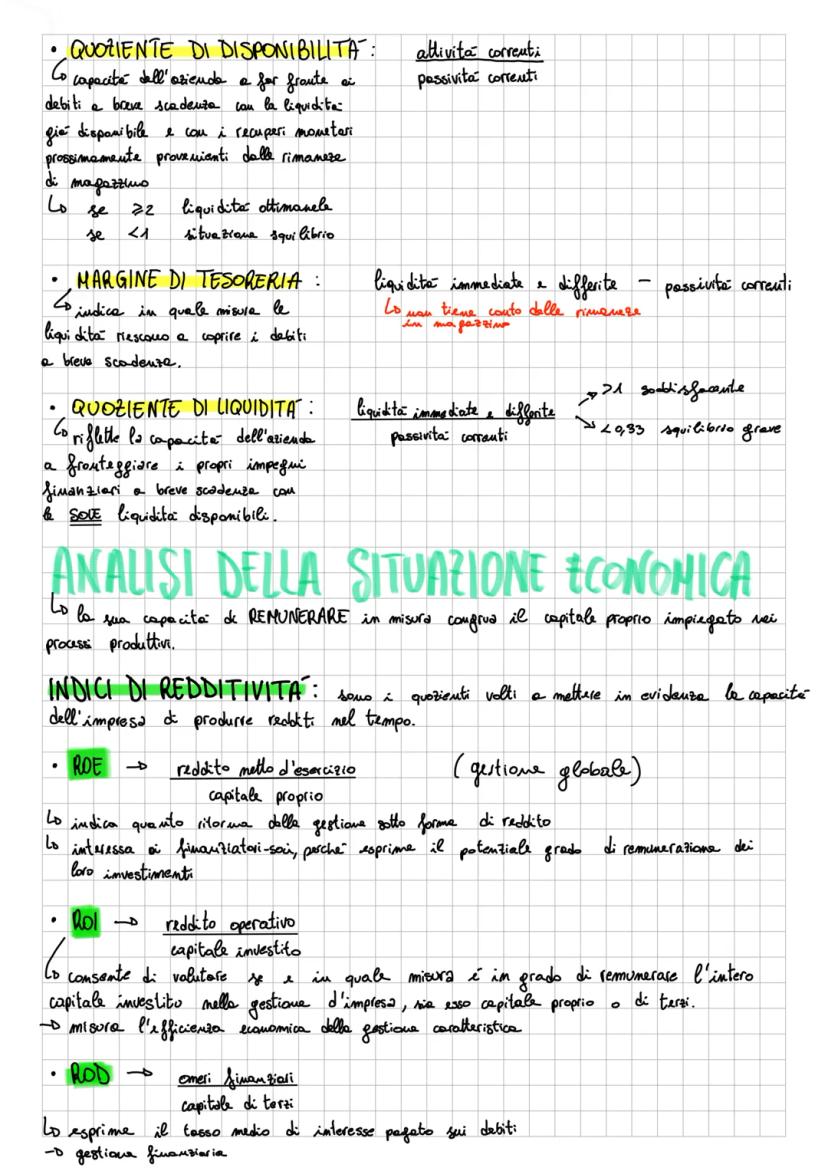 • QUOZIENTE DI DISPONIBILITÀ: attività correnti
passività correnti
↳ capacità dell'azienda a far fronte ai
debiti a breve scadenza con la liquidità
già disponibile e con i recuperi monetari
prossimamente provenienti dalle rimaneze
di magazzino
↳ se ⩾2 liquidità ottimanele
se <1 situazione squilibrio
• MARGINE DI TESORERIA : liquidità immediate e differite - passività correnti
↳ non tiene conto delle rimaneze
in magazzino
↳ indica in quale misura le
liquidità riescono a coprire i debiti
a breve scadenza.
• QUOZIENTE DI LIQUIDITÀ : liquidità immediate e differite
passività correnti
→ >1 soddisfacente
→ <0,33 squilibrio grave
↳ riflette la capacità dell'azienda
a fronteggiare i propri impegni
finanziari a breve scadenza con
le SOLE liquidità disponibili.
ANALISI DELLA SITUAZIONE ECONOMICA
↳ la sua capacità di REMUNERARE in misura congrua il capitale proprio impiegato nei
processi produttivi.
INDICI DI REDDITIVITÀ: sono i quozienti volti a mettere in evidenza la capacità
dell'impresa di produrre redditi nel tempo.
• ROE → reddito netto d'esercizio (gestione globale)
capitale proprio
↳ indica quanto ritorna dalla gestione sotto forma di reddito
↳ interessa ai finanziatori-soci, perché esprime il potenziale grado di remunerazione dei
loro investimenti
• ROI → reddito operativo
capitale investito
↳ consente di valutare se e in quale misura è in grado di remunerare l'intero
capitale investito nella gestione d'impresa, sia esso capitale proprio o di terzi.
→ misura l'efficienza economica della gestione caratteristica
• ROD → oneri finanziari
capitale di terzi
↳ esprime il tasso medio di interesse pagato sui debiti
→ gestione finanziaria